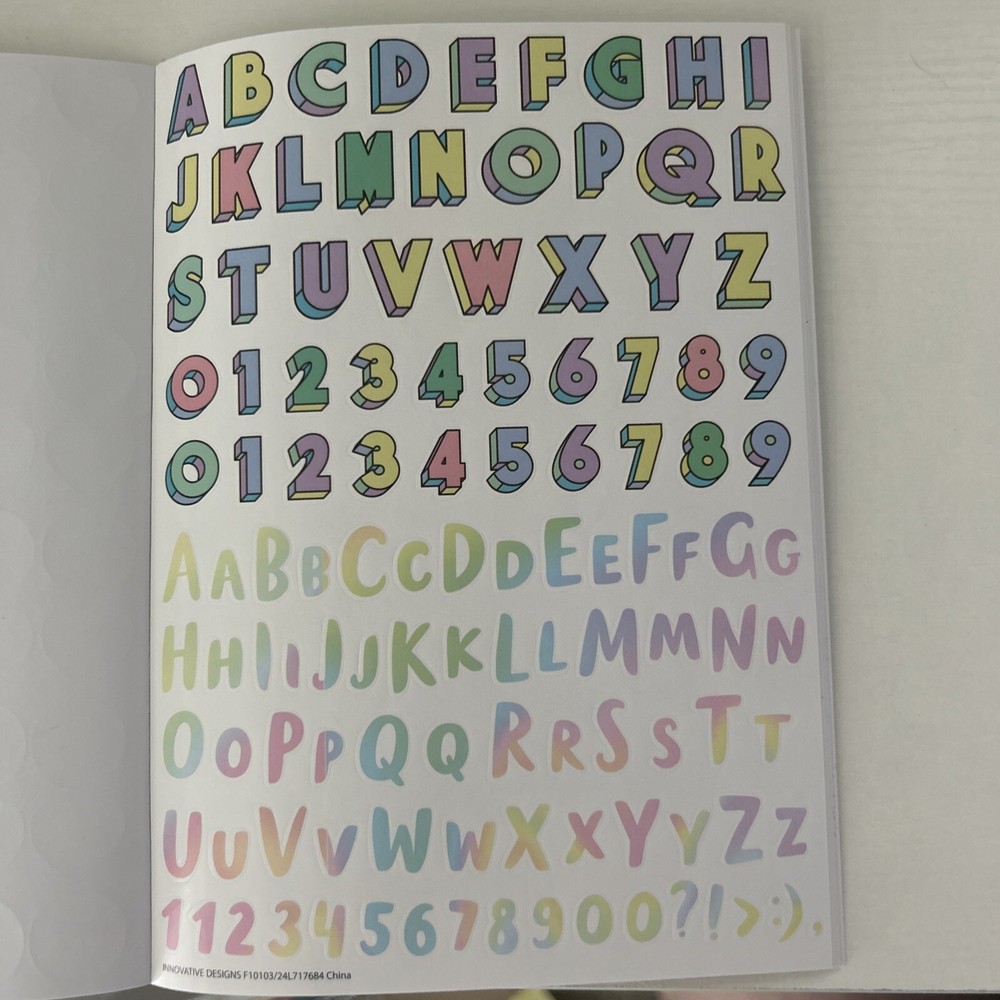 A B C D E F G H I
J K L M N O P Q R
S T U V W X Y Z
0 1 2 3 4 5 6 7 8 9
0 1 2 3 4 5 6 7 8 9
A A B B C C D D E E F F G G
H H I I J J K K L L M M N N
O O P P Q Q R R S S T T
U U V V W W X X Y Y Z Z
1 1 2 3 4 5 6 7 8 9 0 0 ? ! > : ) ,
INNOVATIVE DESIGNS F10103/24L717684 China